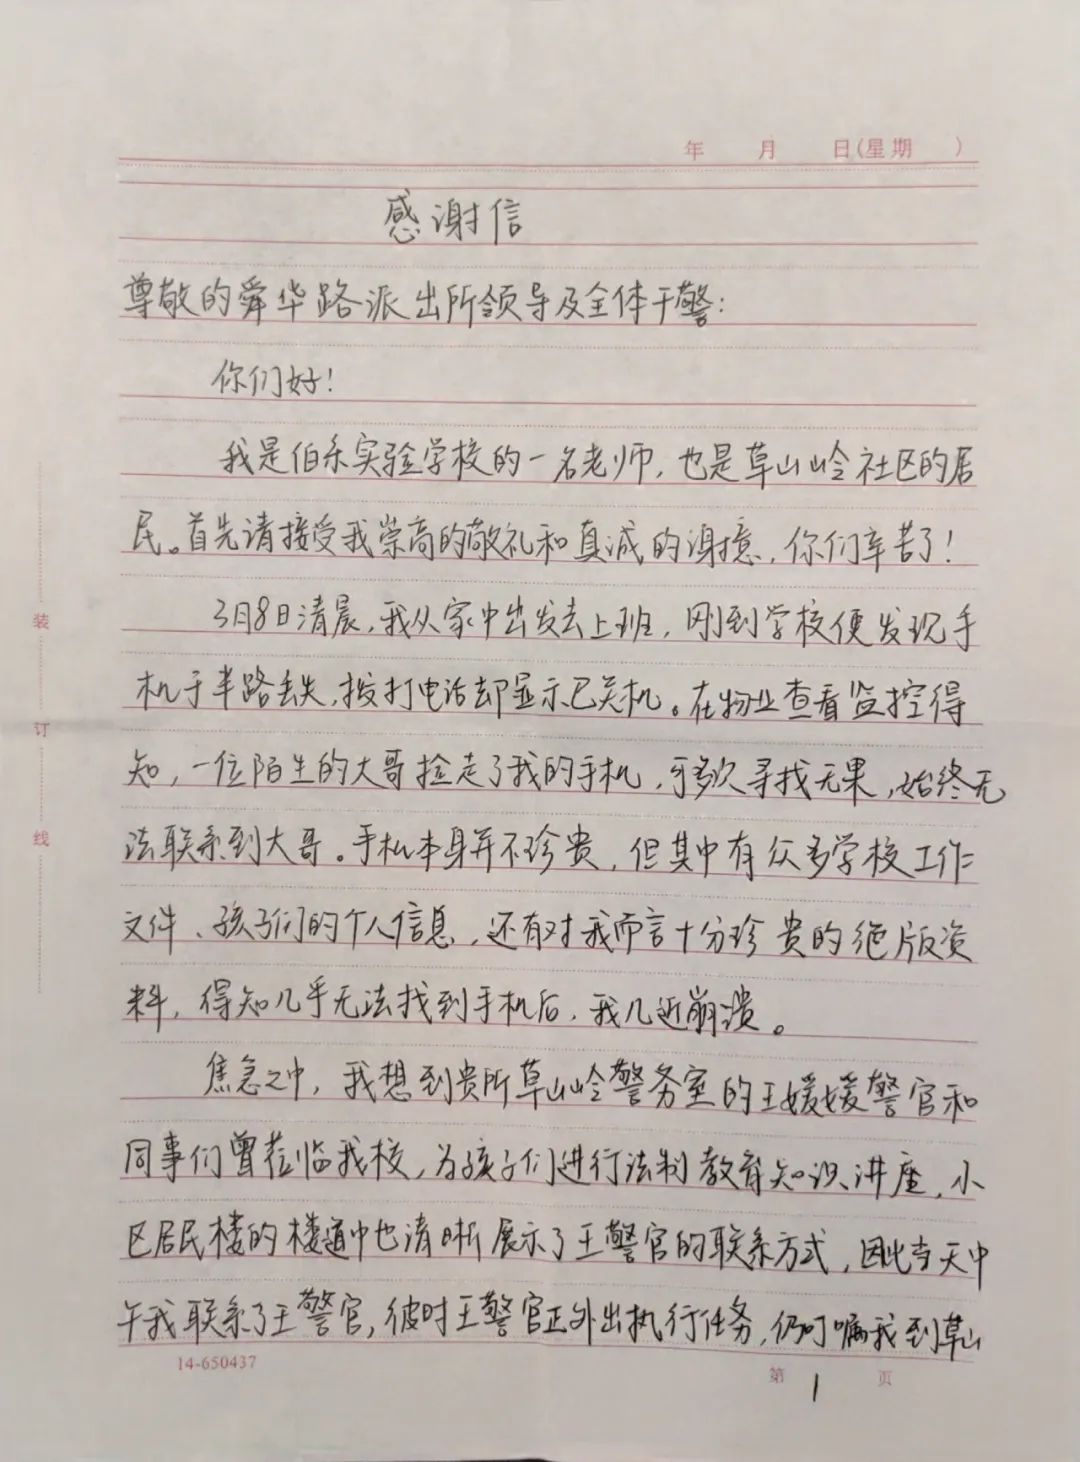 年 月 日(星期 )
感谢信
尊敬的舜华路派出所领导及全体干警:
你们好!
我是伯乐实验学校的一名老师,也是草山岭社区的居
民。首先请接受我崇高的敬礼和真诚的谢意,你们辛苦了!
3月8日清晨,我从家中出发去上班,刚到学校便发现手
机于半路丢失,拨打电话却显示已关机。在物业查看监控得
知,一位陌生的大哥捡走了我的手机,可多次寻找无果,始终无
法联系到大哥。手机本身并不珍贵,但其中有众多学校工作
文件、孩子们的个人信息,还有对我而言十分珍贵的绝版资
料,得知几乎无法找到手机后,我几近崩溃。
焦急之中,我想到贵所草山岭警务室的王媛媛警官和
同事们曾莅临我校,为孩子们进行法制教育知识讲座,小
区居民楼的楼道中也清晰展示了王警官的联系方式,因此当天中
午我联系了王警官,彼时王警官正外出执行任务,仍叮嘱我到草山
装
订
线
14-650437
第 1 页